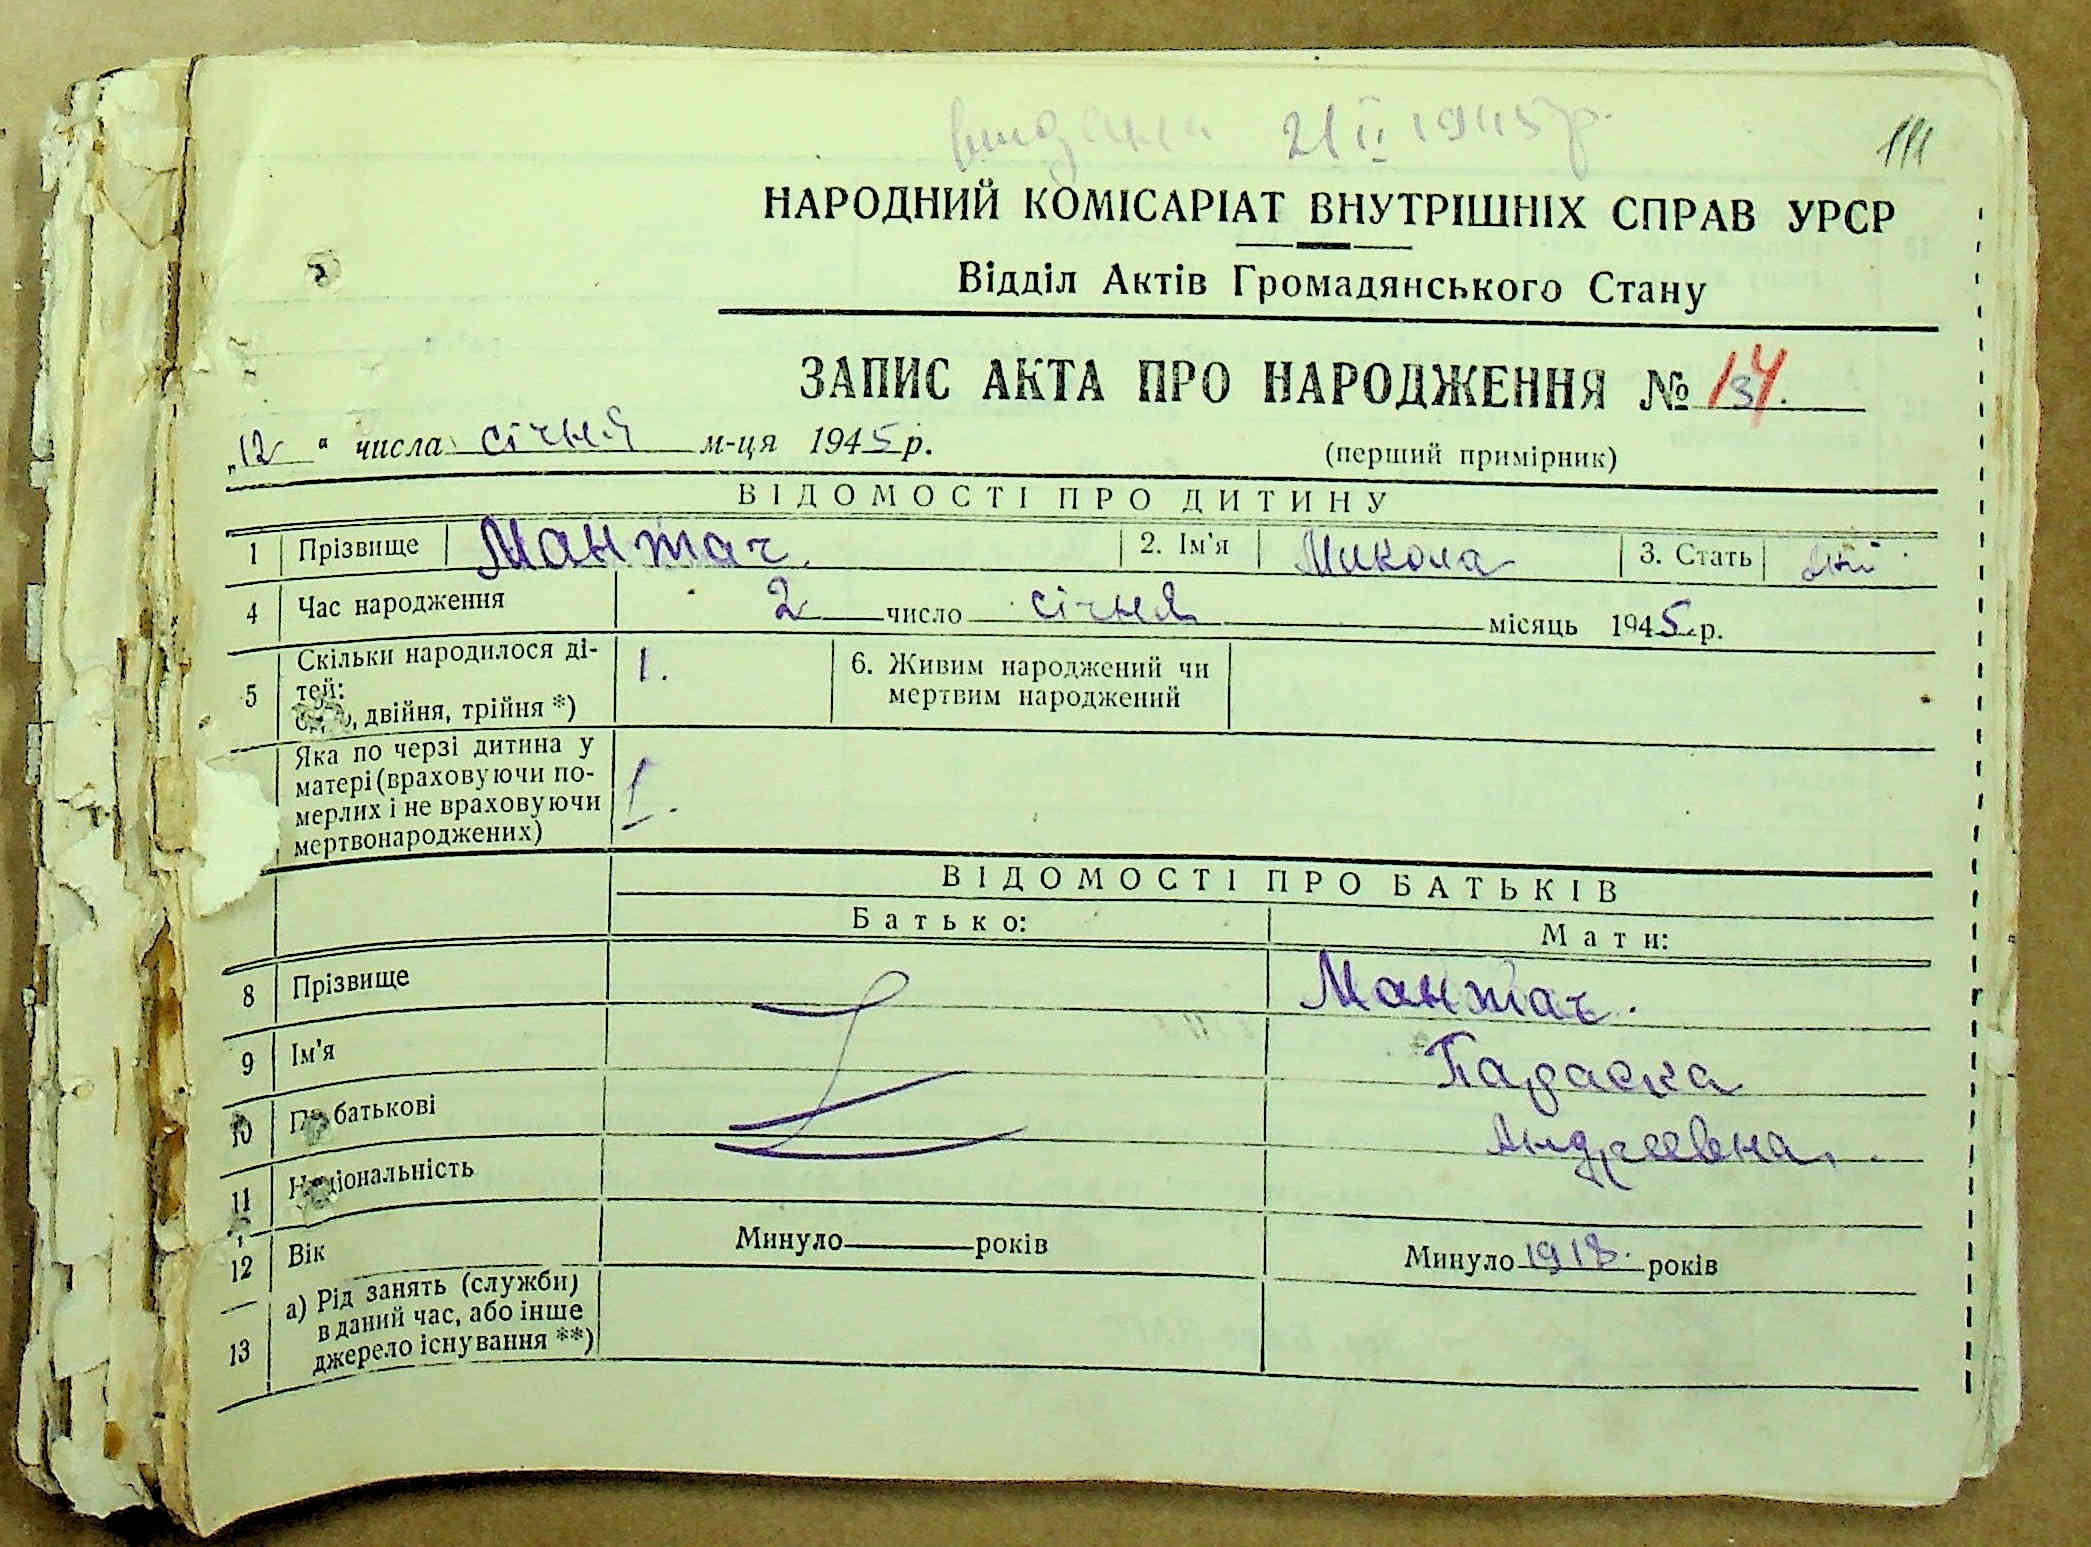 видана 21 II 1945 р.
111
НАРОДНИЙ КОМІСАРІАТ ВНУТРІШНІХ СПРАВ УРСР
Відділ Актів Громадянського Стану
ЗАПИС АКТА ПРО НАРОДЖЕННЯ №
„12" числа січня м-ця 1945 р.
(перший примірник)
ВІДОМОСТІ ПРО ДИТИНУ
1 Прізвище Манжач. 2. Ім'я Микола 3. Стать
4 Час народження 2 число січня місяць 1945 р.
5 Скільки народилося ді-
тей:
, двійня, трійня *) 1. 6. Живим народжений чи
мертвим народжений
Яка по черзі дитина у
матері (враховуючи по-
мерлих і не враховуючи
мертвонароджених) I.
ВІДОМОСТІ ПРО БАТЬКІВ
Батько: Мати:
8 Прізвище Манжач.
9 Ім'я Параска
10 По батькові Андреевна.
11 Національність
12 Вік Минуло років Минуло 1918. років
13 а) Рід занять (служби)
в даний час, або інше
джерело існування **)